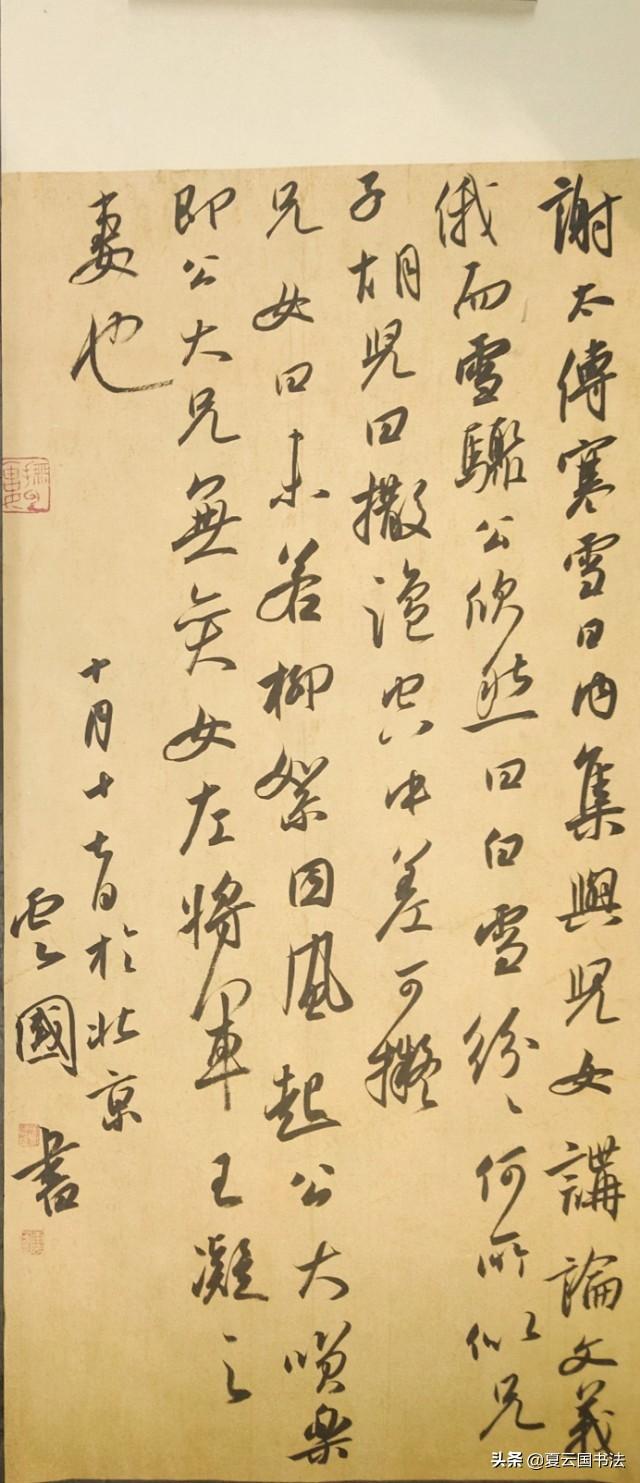 謝太傅寒雪日內集與兒女講論文義
俄而雪驟公欣然曰白雪紛〻何所似兄
子胡兒曰撒鹽空中差可擬
兄女曰未若柳絮因風起公大唉樂
即公大兄無奕女左將軍王凝之
妻也
十月十七日於北京
雲國書
头条@夏云国书法